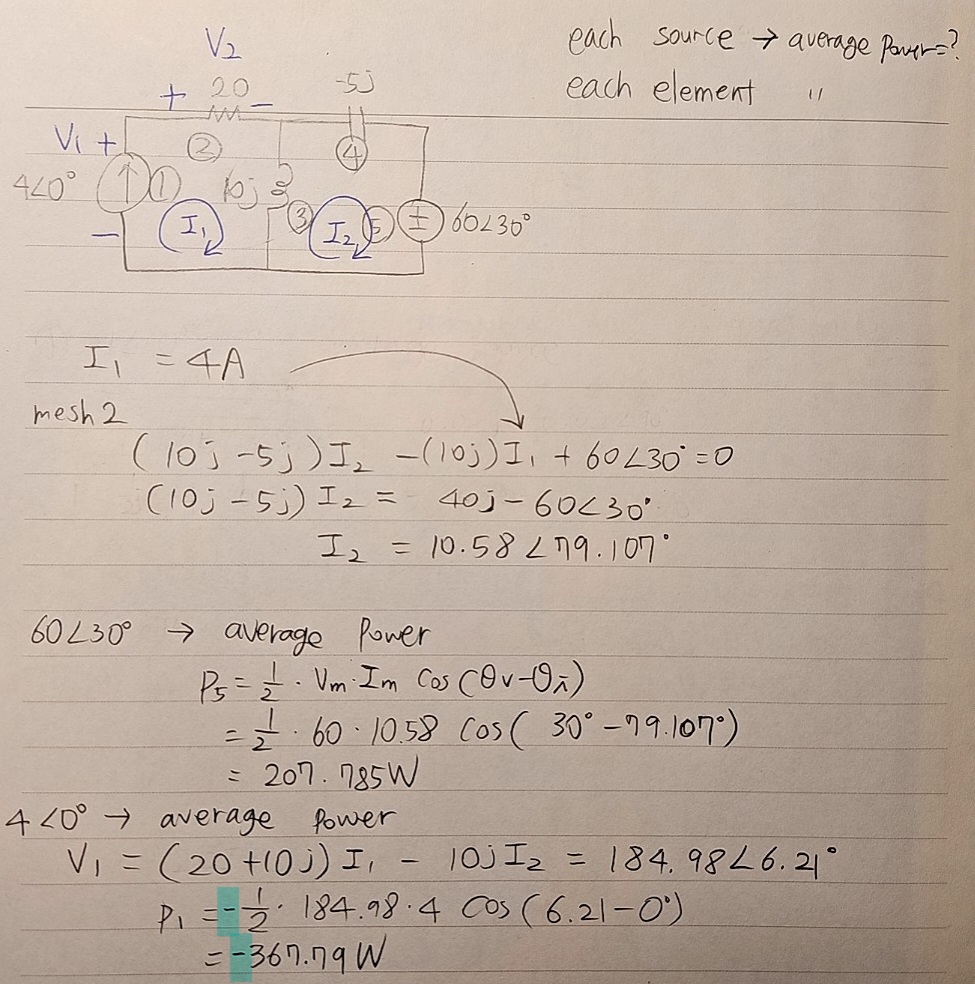 each source → average Power=?
each element "
V2
+ 20 -
-5j
V1 +
②
④
4∠0°
①
10j
③
⑤
60∠30°
-
I1
I2
I1 = 4A
mesh 2
(10j -5j)I2 -(10j)I1 + 60∠30°=0
(10j -5j) I2 = 40j - 60∠30°
I2 = 10.58 ∠79.107°
60∠30° → average Power
P5 = 1/2 · Vm·Im Cos(θv-θi)
= 1/2 · 60 · 10.58 Cos( 30° -79.107°)
= 207.785W
4∠0° → average Power
V1 = (20+10j) I1 - 10j I2 = 184.98∠6.21°
P1 = -1/2 · 184.98·4 Cos(6.21-0°)
= -367.79 W